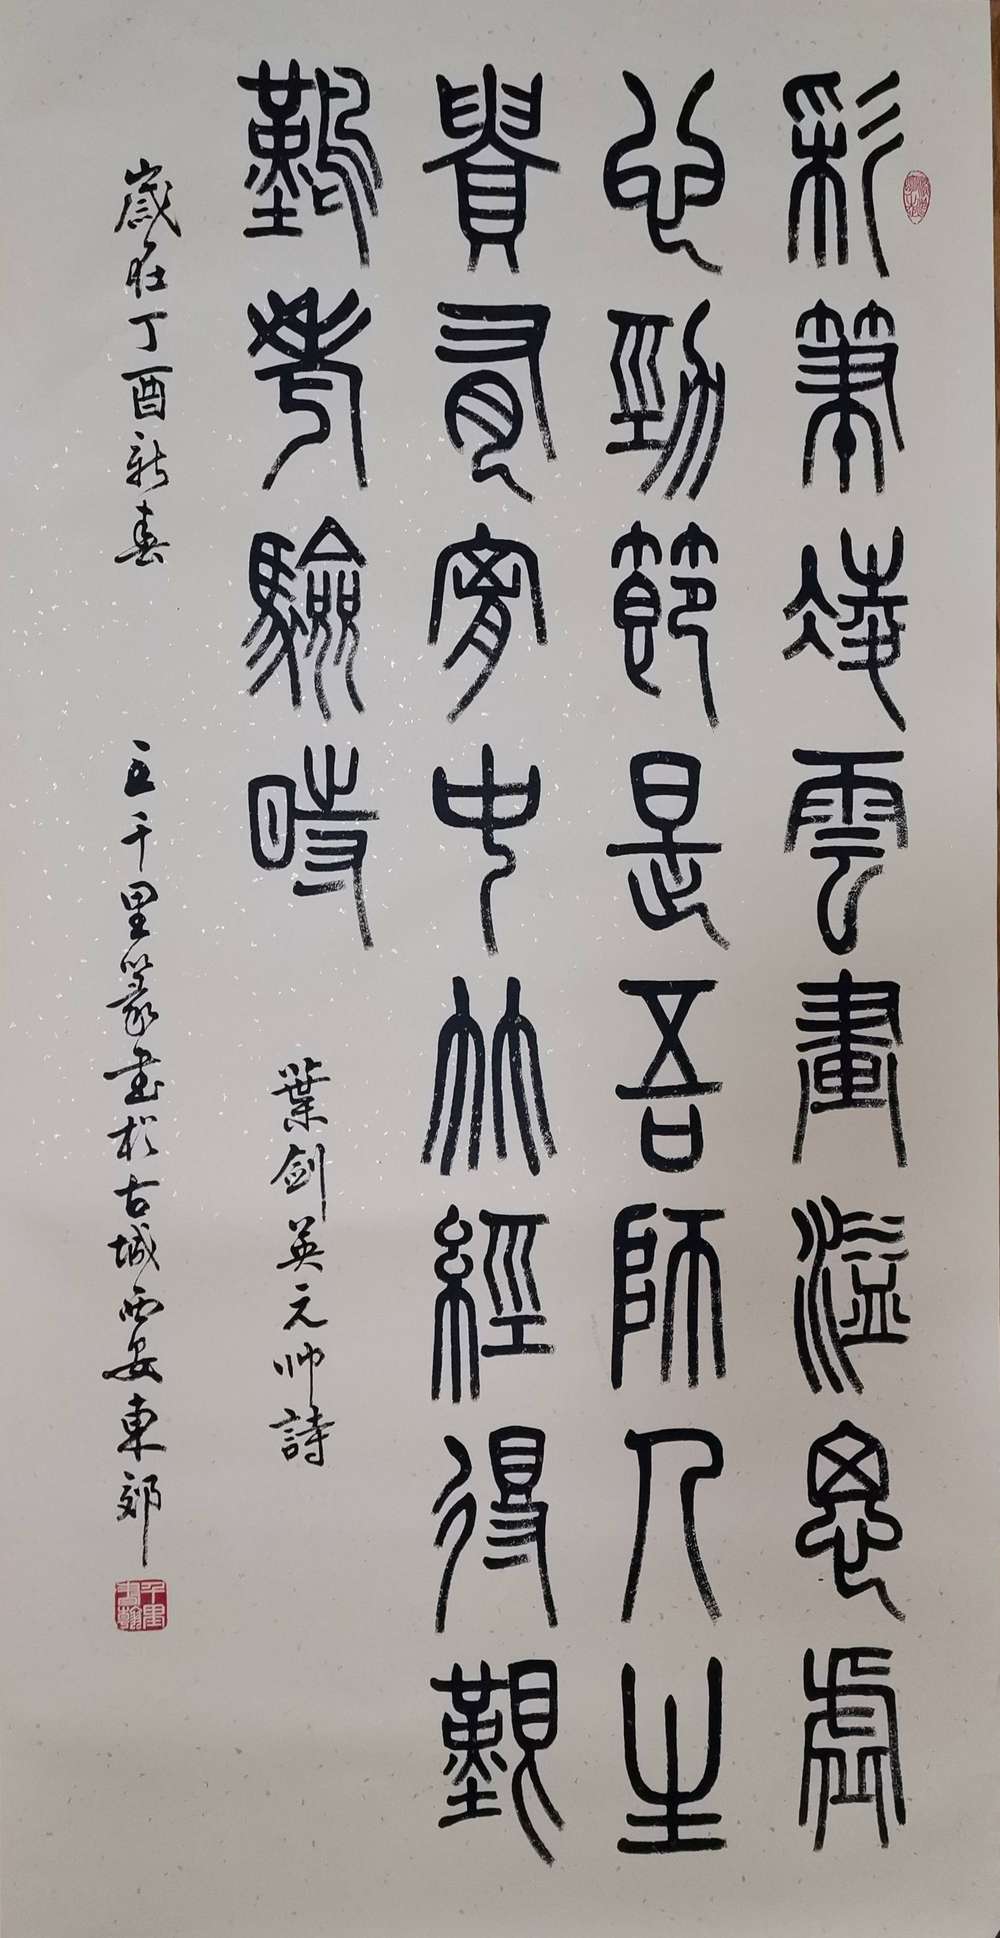 彩筆凌雲畫溢思虛
心勁節是吾師人生
貴有胸中竹經得艱
難考驗時
葉劍英元帥詩
歲在丁酉新春 王千里篆書於古城西安東郊
千里書翰